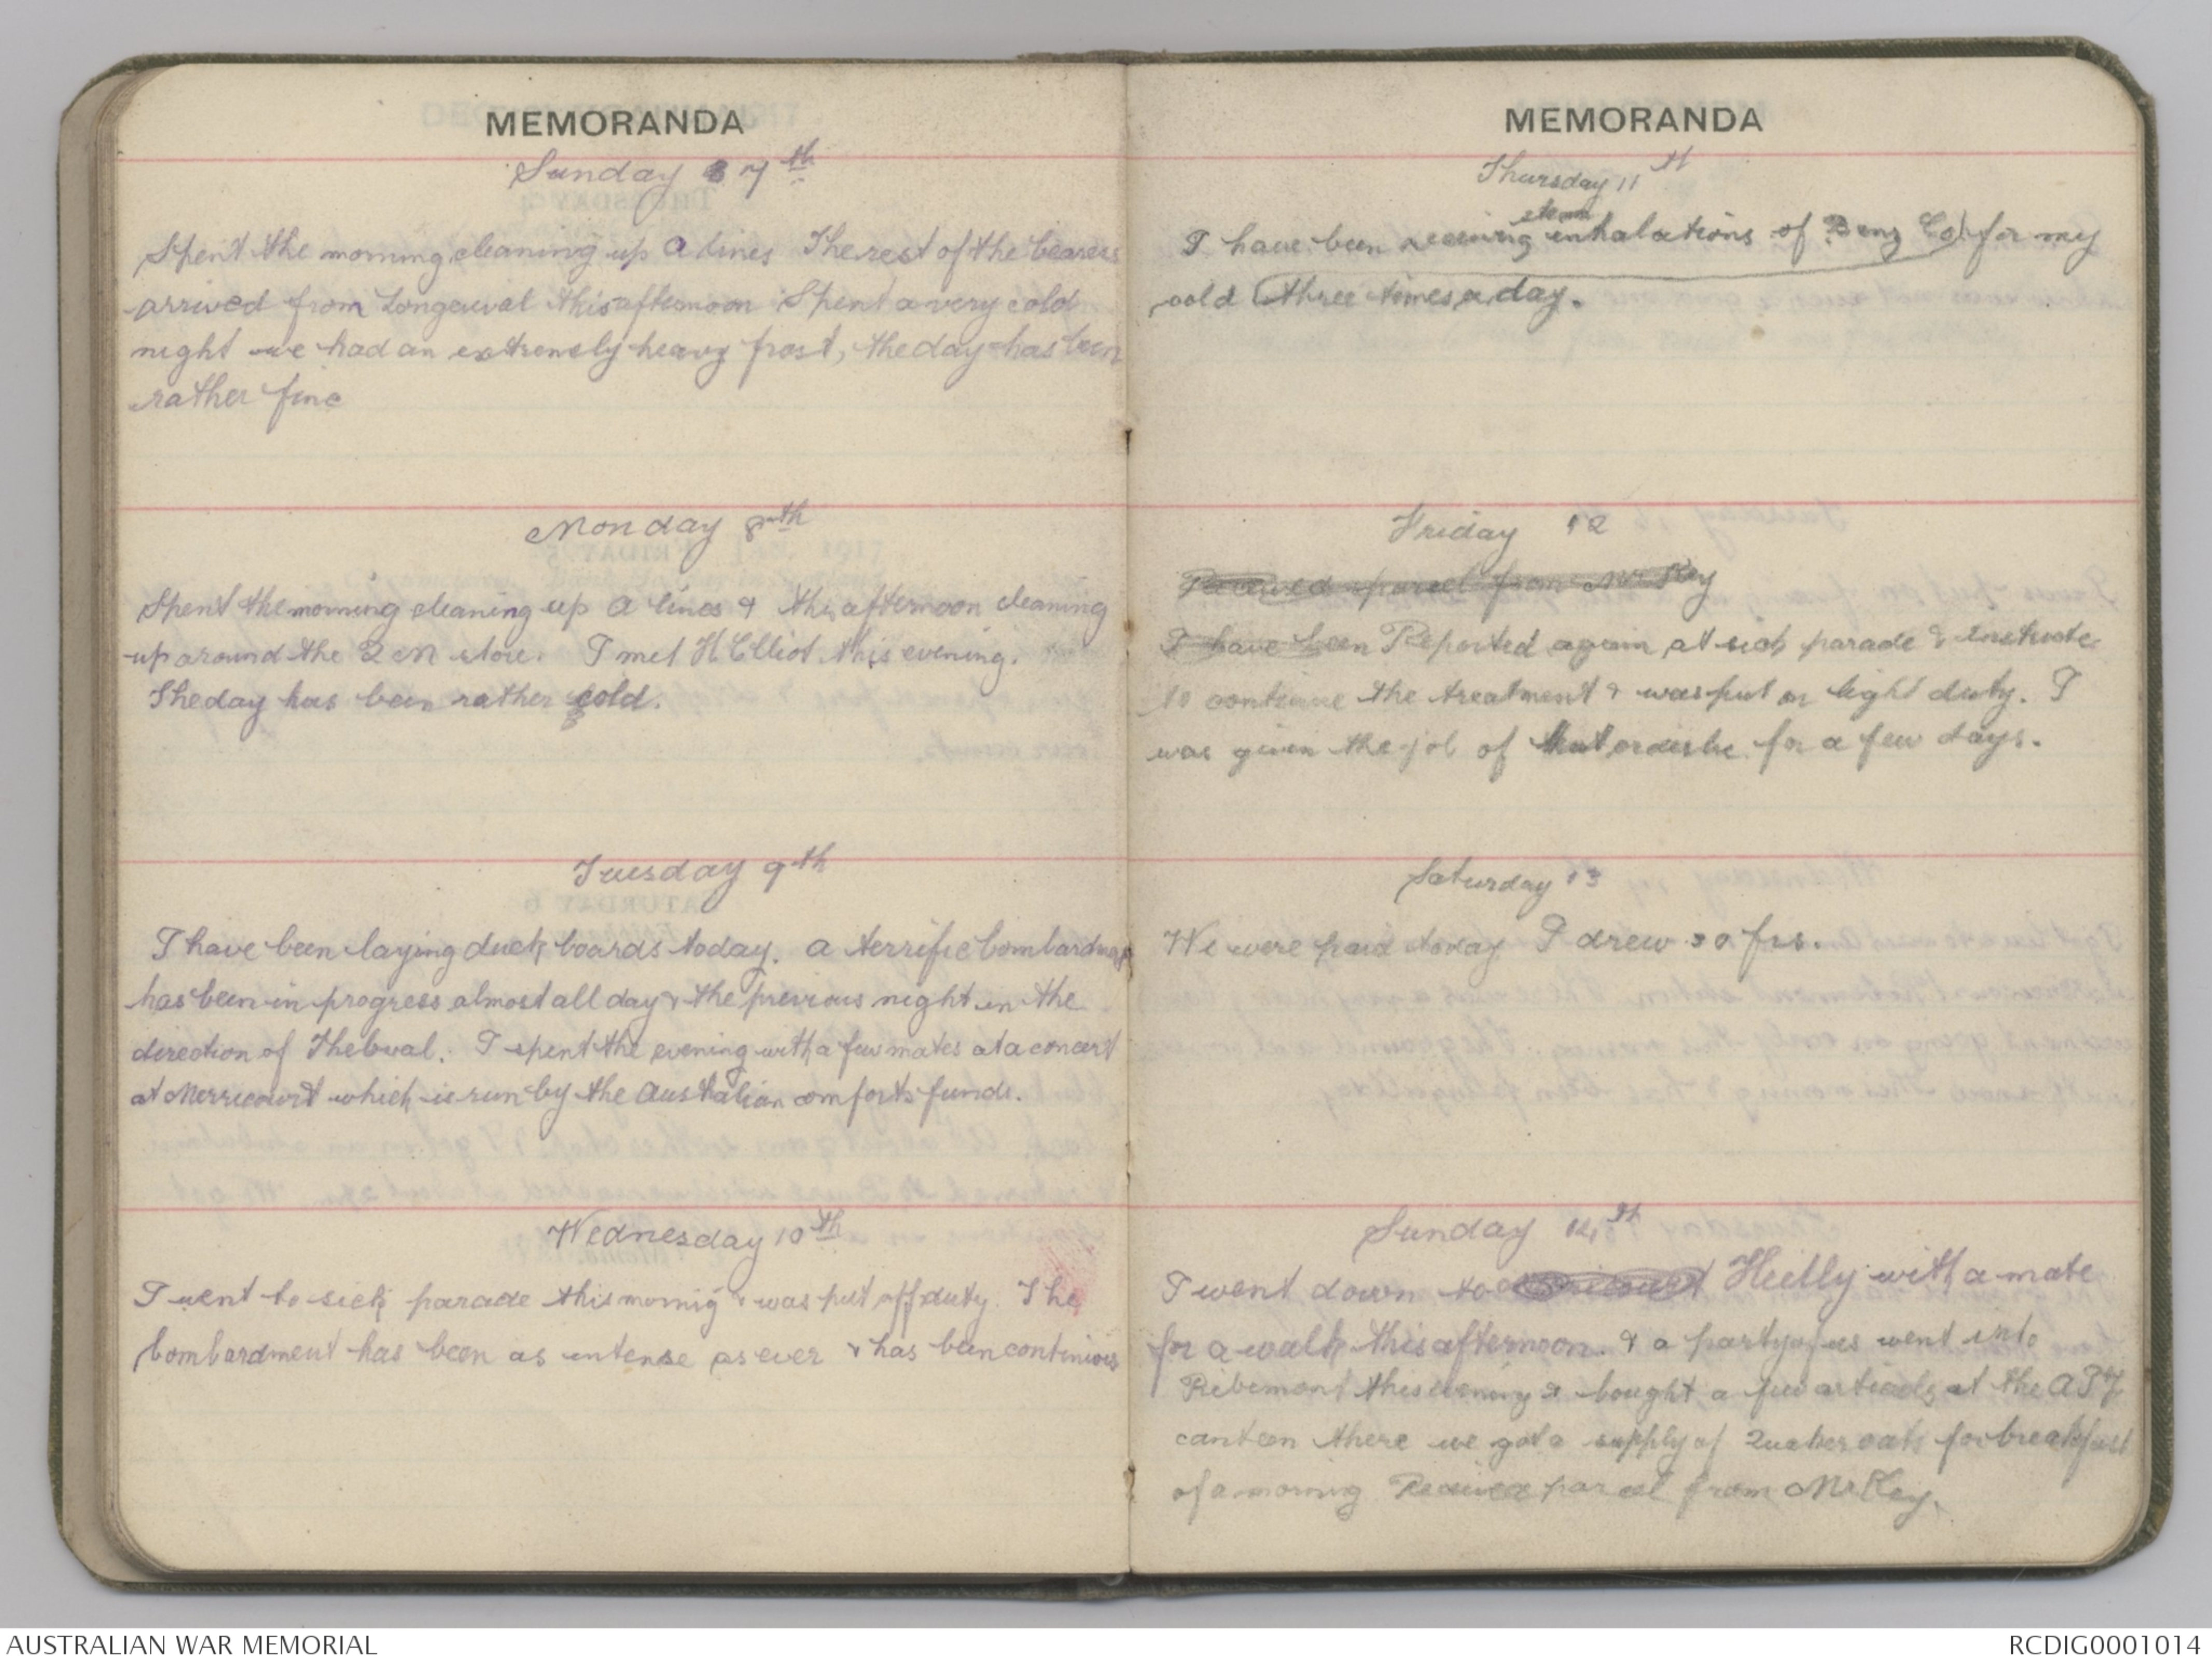 MEMORANDA
Sunday 7th
Spent the morning cleaning up A lines The rest of the bearers
arrived from Longueval this afternoon Spent a very cold
night we had an extremely heavy frost, the day has been
rather fine
Monday 8th
Spent the morning cleaning up A lines & this afternoon cleaning
up around the Q M store. I met H Elliot this evening.
The day has been rather cold.
Tuesday 9th
I have been laying duck boards today. A terrific bombardment
has been in progress almost all day & the previous night in the
direction of Thebval. I spent the evening with a few mates at a concert
at Merricourt which is run by the Australian comforts funds.
Wednesday 10th
I went to sick parade this mornig & was put off duty. The
bombardment has been as intense as ever & has been continious
MEMORANDA
Thursday 11th
steam
I have been receiving inhalations of Benz Co for my
cold three times a day.
Friday 12
Received parcel from Mr Key
I have been Reported again at sick parade &
to continue the treatment & was put on light duty. I
was given the job of hut for a few days.
Saturday 13
We were paid today I drew 30 frs.
Sunday 14th
I went down to Heilly with a mate
for a walk this afternoon. & a party of us went into
Ribemont this evening & bought a few articals at the
canteen there we got a supply of Quaker oats for breakfast
of a morning Received parcel from Mr Key.
AUSTRALIAN WAR MEMORIAL
RCDIG0001014